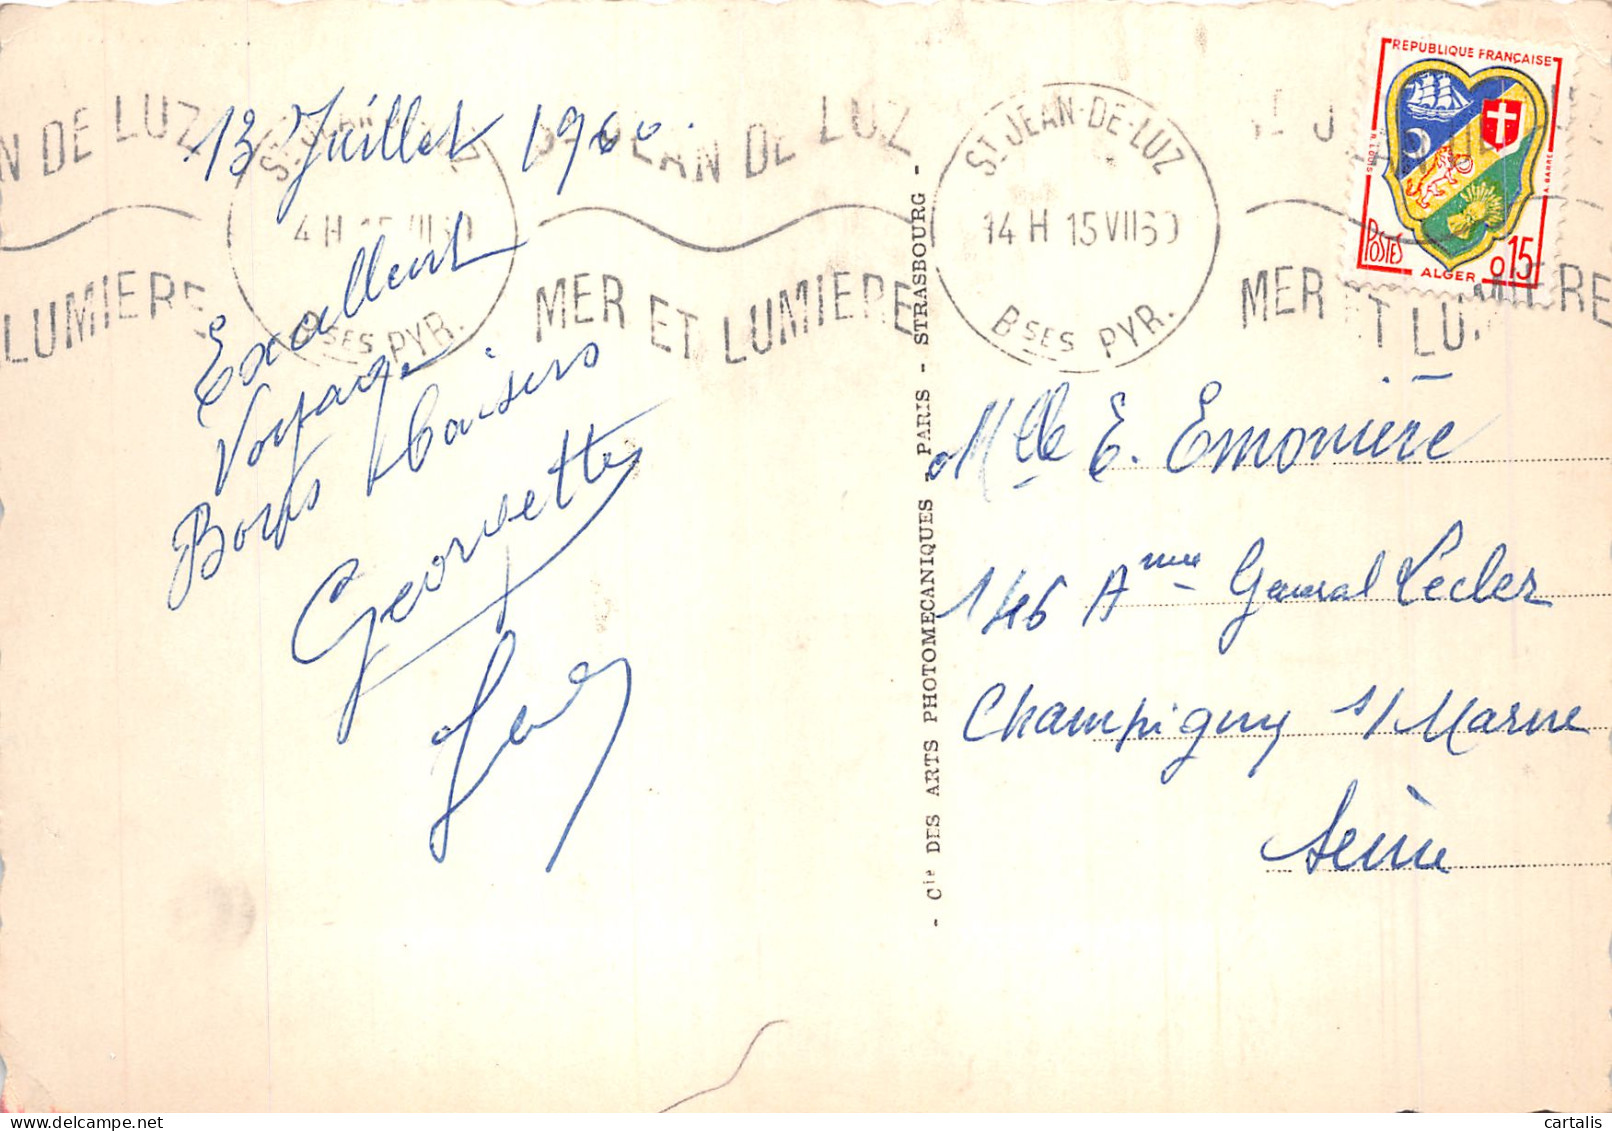 13 Juillet 1960.
Excellent
Voyage
Bons baisers
Georgette
ST JEAN DE LUZ
MER ET LUMIERE
ST JEAN-DE-LUZ
14 H 15 VII 60
BSES PYR.
MER ET LUMIERE
N DE LUZ
LUMIERE
4 H 15 VII 60
BSES PYR.
REPUBLIQUE FRANÇAISE
POSTES
ALGER
0,15
- Cie DES ARTS PHOTOMECANIQUES - PARIS - STRASBOURG -
Mlle E. Emonière
146 Anue General Lecler
Champigny s/ Marne
Seine
cartalis
www.delcampe.net